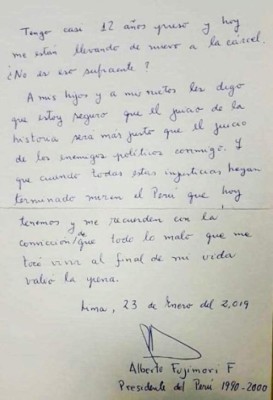 Tengo casi 12 años preso y hoy
me están llevando de nuevo a la cárcel.
¿No es eso suficiente?
A mis hijos y a mis nietos les digo
que estoy seguro que el juicio de la
historia será más justo que el juicio
de los enemigos políticos conmigo. Y
que cuando todas estas injusticias hayan
terminado miren el Perú que hoy
tenemos y me recuerden con la
convicción de que todo lo malo que me
tocó vivir al final de mi vida
valió la pena.
Lima, 23 de Enero del 2,019
Alberto Fujimori F
Presidente del Perú 1990-2000